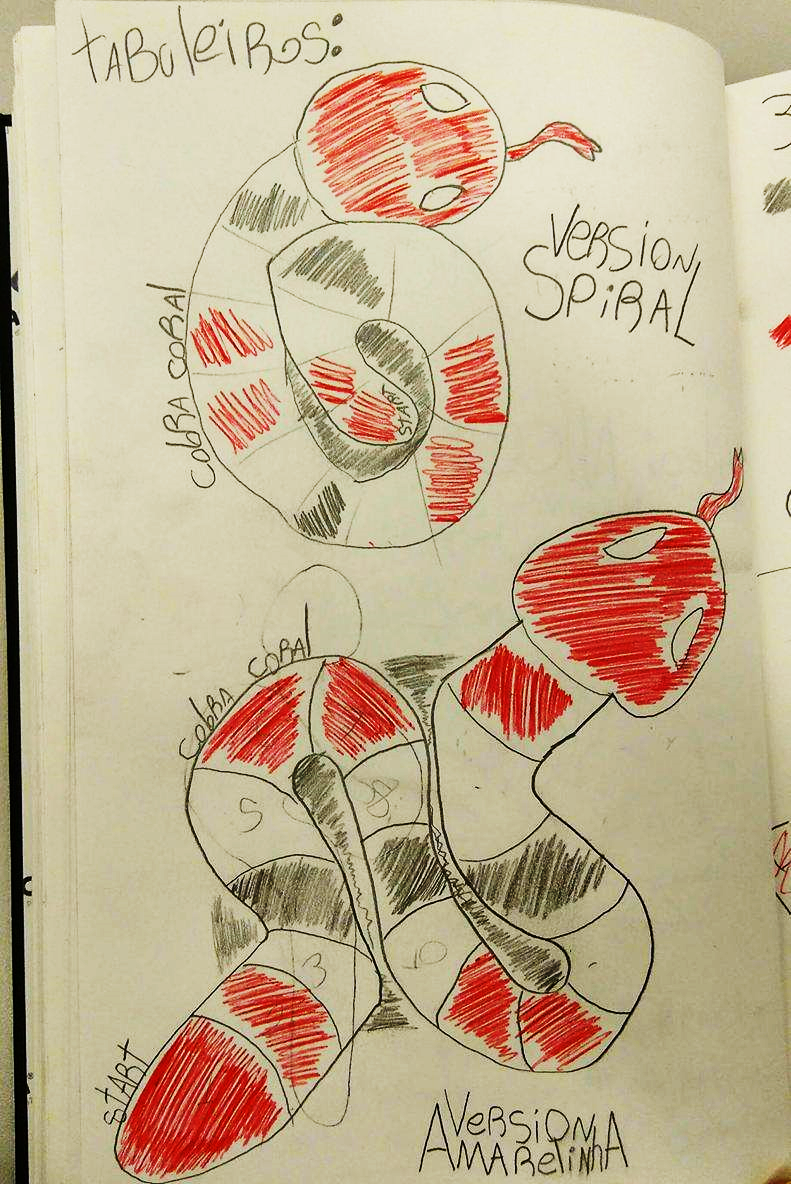 tABuleiRos:
VeRsion
SpiRAL
cobRA coRAl
StARt
cobRA coRAl
5
3
10
StARt
VeRsion
AMARelinhA